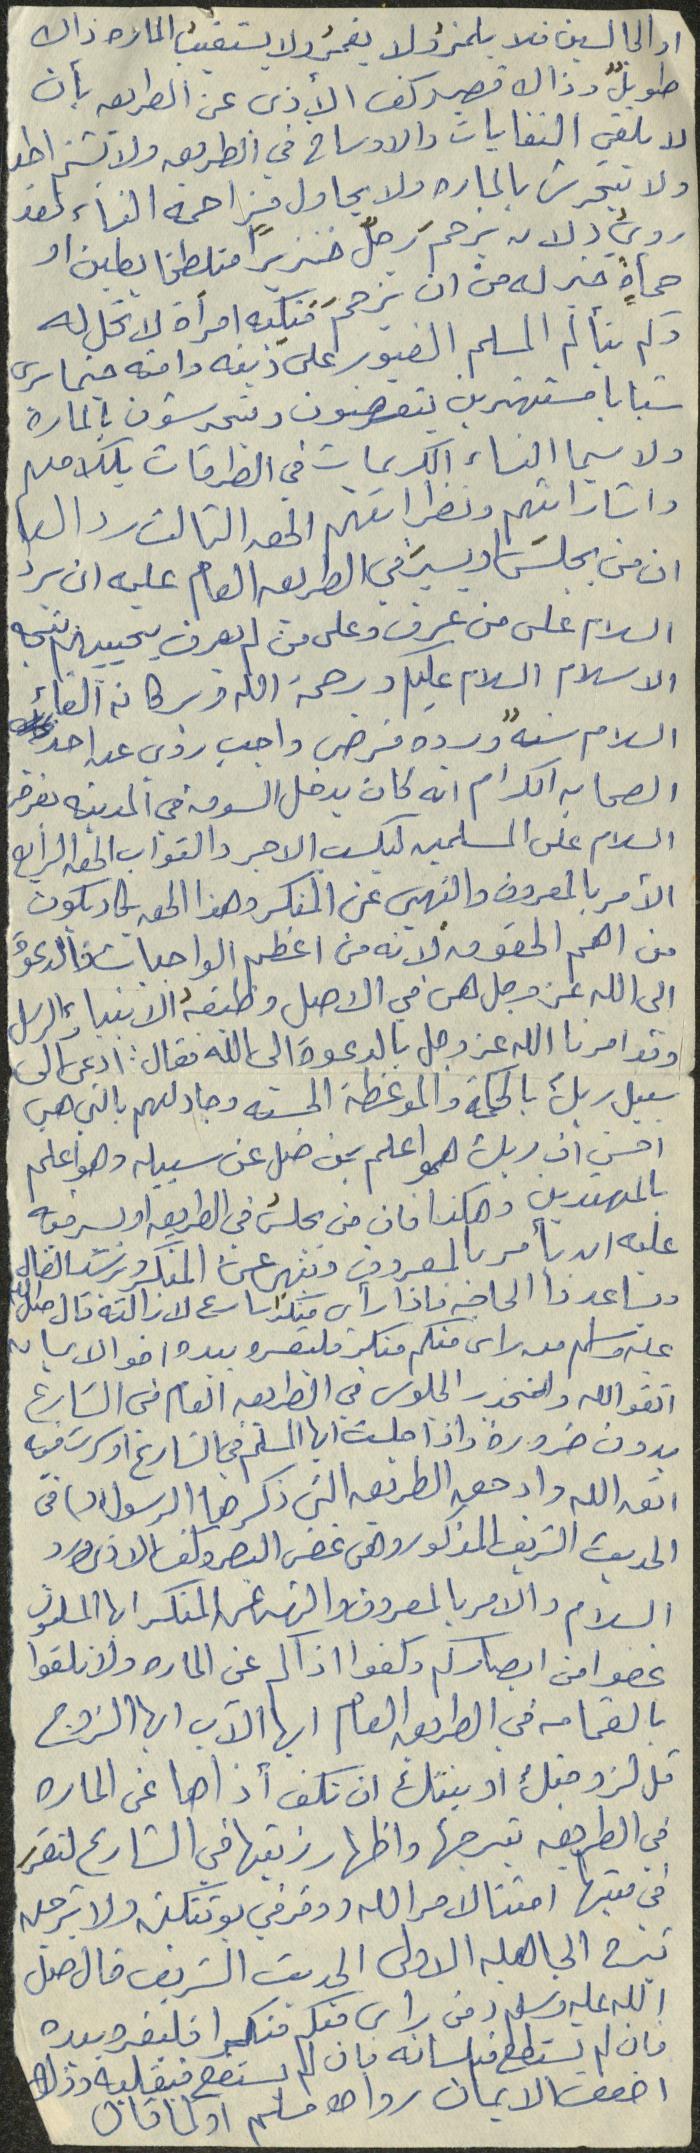 او الجالسين فلا يلمز ولا يغمز ولا يستغيب الماره ذاك
طويل وذاك قصير وكف الأذى عن الطريق بأن
لا يلقي النفايات والاوساخ في الطريق ولا تشتم احد
ولا يتحرش بالماره ولا يحاول مزاحمة النساء لقد
روي ولان يزحم رجل خنزيراً متلطخا بطين او
حمأةٍ خير له من ان تزحم منكبه امرأة لا تحل له
وكم يتألم المسلم الغيور على دينه وامته حينما يرى
شبابا مستهترين يتعرضون ويتحرشون بالمارة
ولا سيما النساء الكريمات في الطرقات بكلامهم
واشاراتهم ونظراتهم الحق الثالث رد السلا
ان من يجلس او يسير في الطريق العام عليه ان يرد
السلام على من عرف وعلى من لم يعرف يحييهم بتحية
الاسلام السلام عليكم ورحمة الله وبركاته القاء
السلام سنة ورده فرض واجب روي عن احد
الصحابه الكرام انه كان يدخل السوق في المدينه يقرئ
السلام على المسلمين ليكسب الاجر والثواب الحق الرابع
الأمر بالمعروف والنهي عن المنكر وهذا الحق يكاد يكون
من اهم الحقوق لانه من اعظم الواجبات فالدعوة
الى الله عز وجل هي في الاصل وظيفة الانبياء والرسل
وقد امرنا الله عز وجل بالدعوة الى الله فقال: ادعى الى
سبيل ربك بالحكمة والموعظة الحسنه وجادلهم بالتي هي
احسن ان ربك هو اعلم بمن ضل عن سبيله وهو اعلم
بالمهتدين وهكذا فان من يجلس في الطريق او يسر فيه
عليه ان يأمر بالمعروف وينهى عن المنكر ويرشد الضال
ويساعد ذا الحاجه فاذا رأى منكرا سارع لازالته قال صلى الله
عليه وسلم من راى منكم منكرا فليغيره بيده اخوالايمان
اتقوالله والحذر الجلوس في الطريق العام في الشارع
بدون ضرورة واذا جلست ايها المسلم في الشارع او سرت فيه
اتق الله واد حق الطريق التي ذكرها الرسول (ص) في
الحديث الشريف المذكور وهي غض البصر وكف الاذى ورد
السلام والامر بالمعروف والنهى عن المنكر ايها المسلمون
غضوا من ابصاركم وكفوا اذاكم عن الماره ولا تلقوا
بالقمامه في الطريق العام ايها الآب ايها الزوج
قل لزوجتك او بنتك ان تكف أذاها عن الماره
في الطريق تبرجها واظهار زينتها في الشارع لتقر
في بيتها امتثالا لامر الله وقرن في بيوتكن ولا تبرجن
تبرج الجاهليه الاولى الحديث الشريف قال صلى
الله عليه وسلم من راى منكم منكرا فليغيره بيده
فان لم يستطع فبلسانه فان لم يستطع فبقلبه وذلك
اضعف الايمان رواه مسلم او كما قال